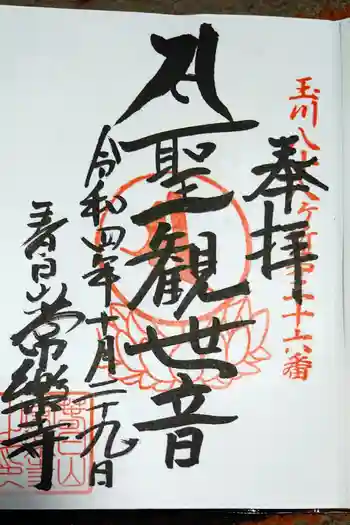 玉川八十八ヶ所第三十六番
奉拝
聖観世音
令和四年十月二十九日
春日山
常樂寺